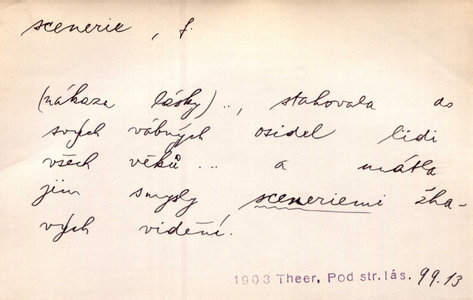 scenerie, f.
(nákaza lásky) .., stahovala do
svých vábných osidel lidi
všech věků ... a mátla
jim smysly sceneriemi žha-
vých vidění.
1903 Theer, Pod str. lás. 99.13